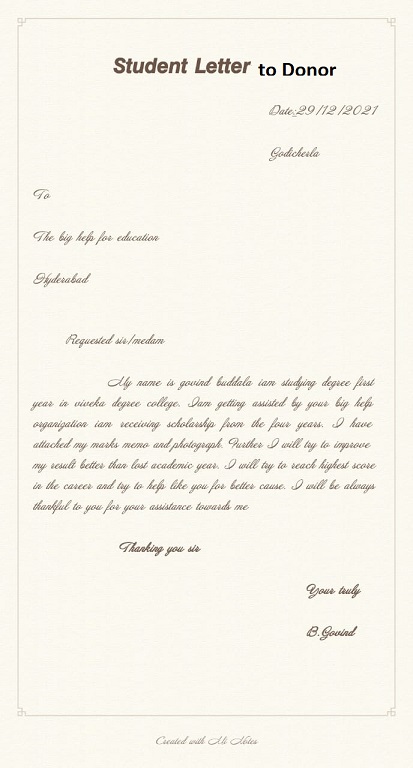 Student Letter to Donor
Date:29/12/2021
Godicherla
To
The big help for education
Hyderabad
Requested sir/medam
My name is govind buddala iam studying degree first
year in viveka degree college. Iam getting assisted by your big help
organization iam receiving scholarship from the four years. I have
attached my marks memo and photograph. Further I will try to improve
my result better than lost academic year. I will try to reach highest score
in the career and try to help like you for better cause. I will be always
thankful to you for your assistance towards me
Thanking you sir
Your truly
B.Govind
Created with Mi Notes